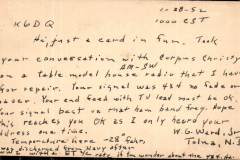 11-28-52
K6DQ 1000 EST
Hi, just a card in fun. Took
your conversation with Corpus Christi
AM-SW
on a table model house radio that I have
for repair. Your signal was 45+ no fade or
Your end feed with TV lead must be ok.
Your signal best one on that ham band tray. Hope
this reaches you OK as I only heard your
address one time. W.G. Ward, Jr
Temperature here -28° Fahr. Tolna, N.
was discharged from Navy after